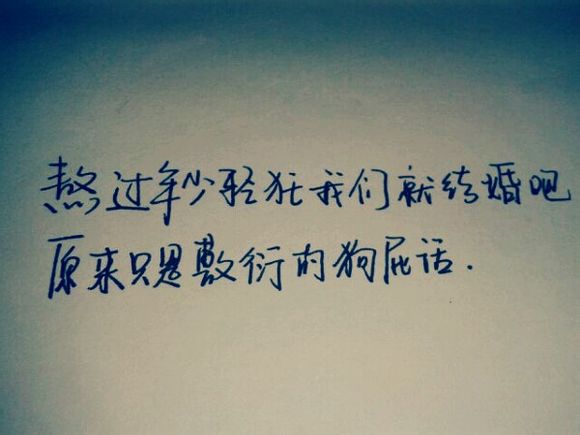 熬过年少轻狂我们就结婚吧
原来只是敷衍的狗屁话.